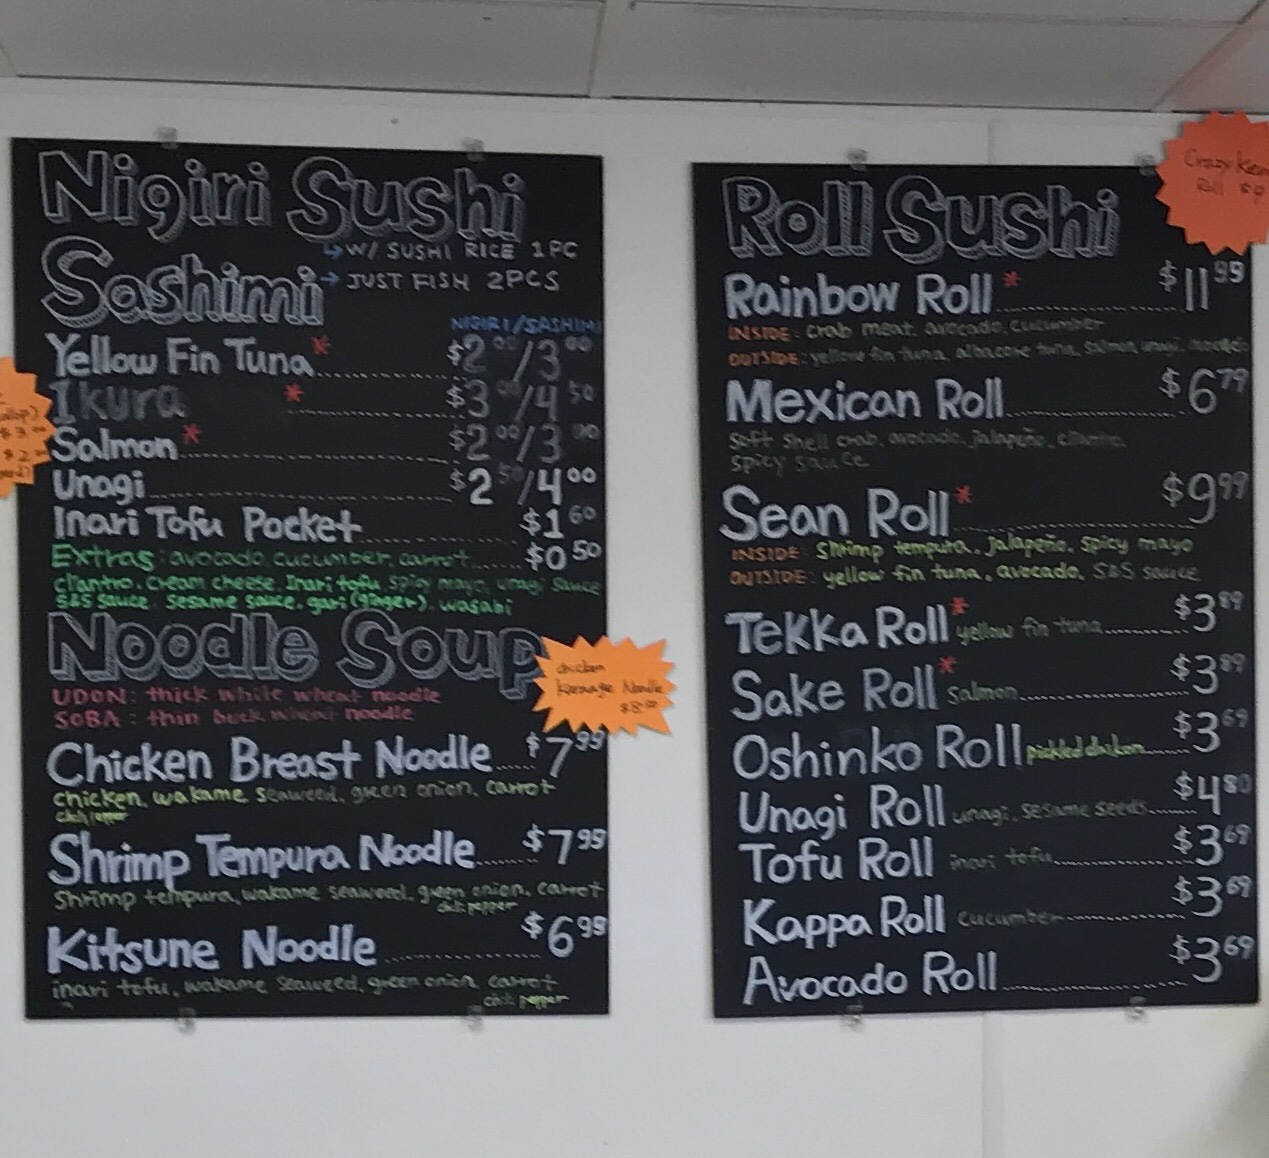 Nigiri Sushi
↳ W/ SUSHI RICE 1PC
Sashimi
→ JUST FISH 2PCS
NIGIRI/SASHIMI
Yellow Fin Tuna* $2.00/3.00
Ikura * $3.00/4.50
Salmon* $2.00/3.00
Unagi $2.50/4.00
Inari Tofu Pocket $1.60
Extras: avocado, cucumber, carrot $0.50
cilantro, cream cheese, Inari tofu, spicy mayo, unagi sauce
S&S sauce, sesame sauce, gari (ginger), wasabi
Noodle Soup
UDON: thick white wheat noodle
SOBA: thin buck wheat noodle
chicken
Noodle
Chicken Breast Noodle $7.99
chicken, wakame seaweed, green onion, carrot
Shrimp Tempura Noodle $7.99
Shrimp tempura, wakame seaweed, green onion, carrot
pepper
Kitsune Noodle $6.99
inari tofu, wakame seaweed, green onion, carrot
pepper
Roll Sushi
Crazy
Roll $9
Rainbow Roll* $11.99
INSIDE: Crab meat, avocado, cucumber
OUTSIDE: yellow fin tuna, albacore tuna, salmon, unagi, avocado
Mexican Roll $6.79
Soft shell crab, avocado, jalapeño, cilantro,
spicy sauce
Sean Roll* $9.99
INSIDE: shrimp tempura, jalapeño, spicy mayo
OUTSIDE: yellow fin tuna, avocado, S&S sauce
Tekka Roll* yellow fin tuna $3.89
Sake Roll* Salmon $3.89
Oshinko Roll pickled daikon $3.69
Unagi Roll unagi, sesame seeds $4.80
Tofu Roll inari tofu $3.69
Kappa Roll cucumber $3.69
Avocado Roll $3.69